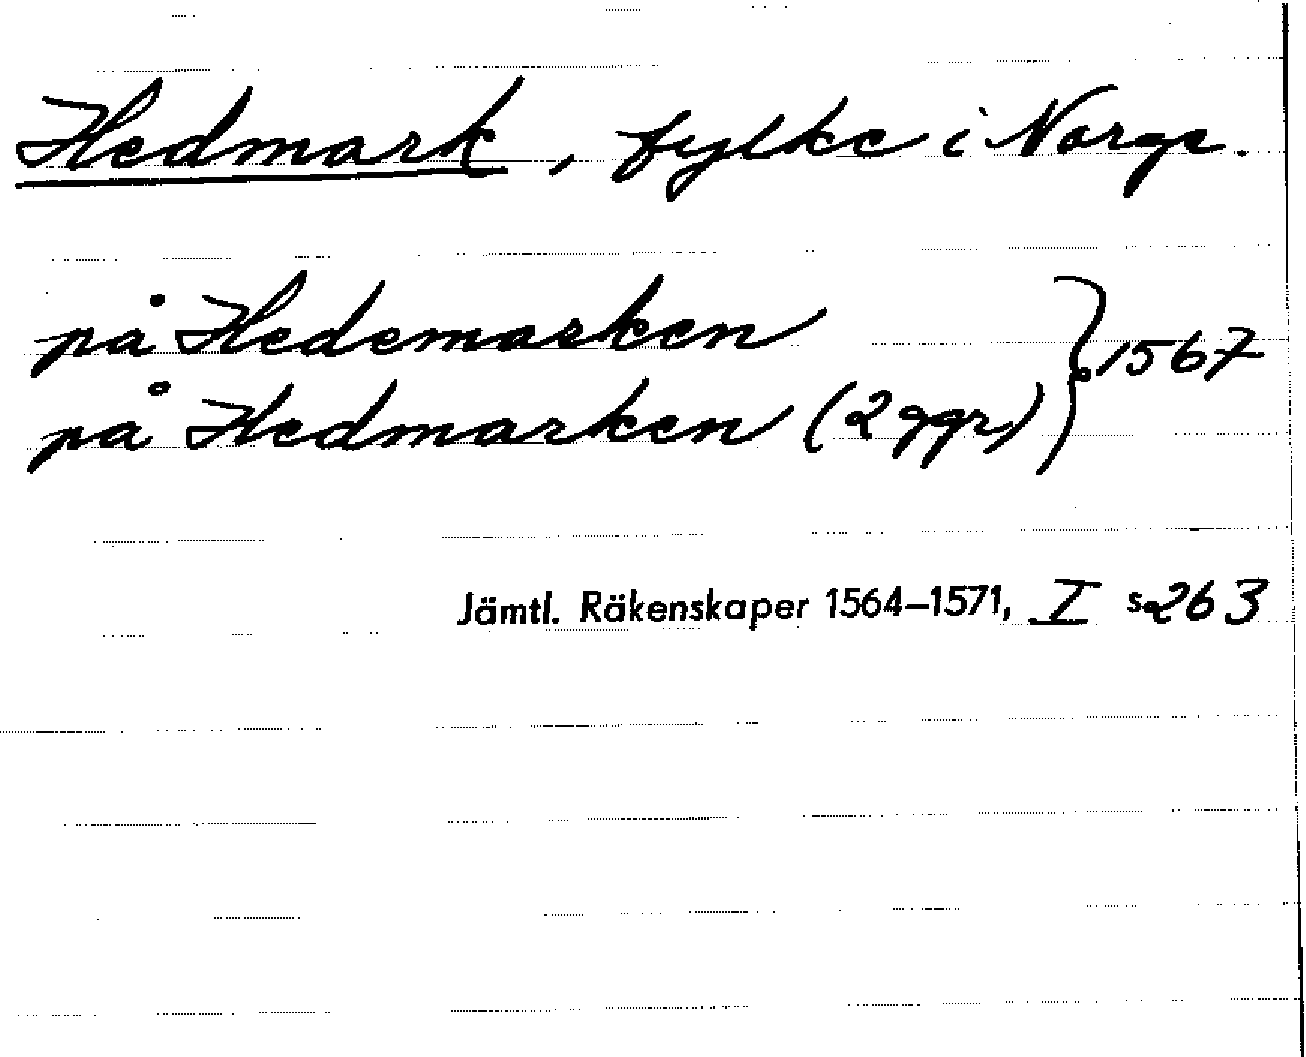 Hedmark, fylke i Norge.
på Hedemarken
på Hedmarken (2 ggr) } 1567
Jämtl. Räkenskaper 1564–1571, I s. 263